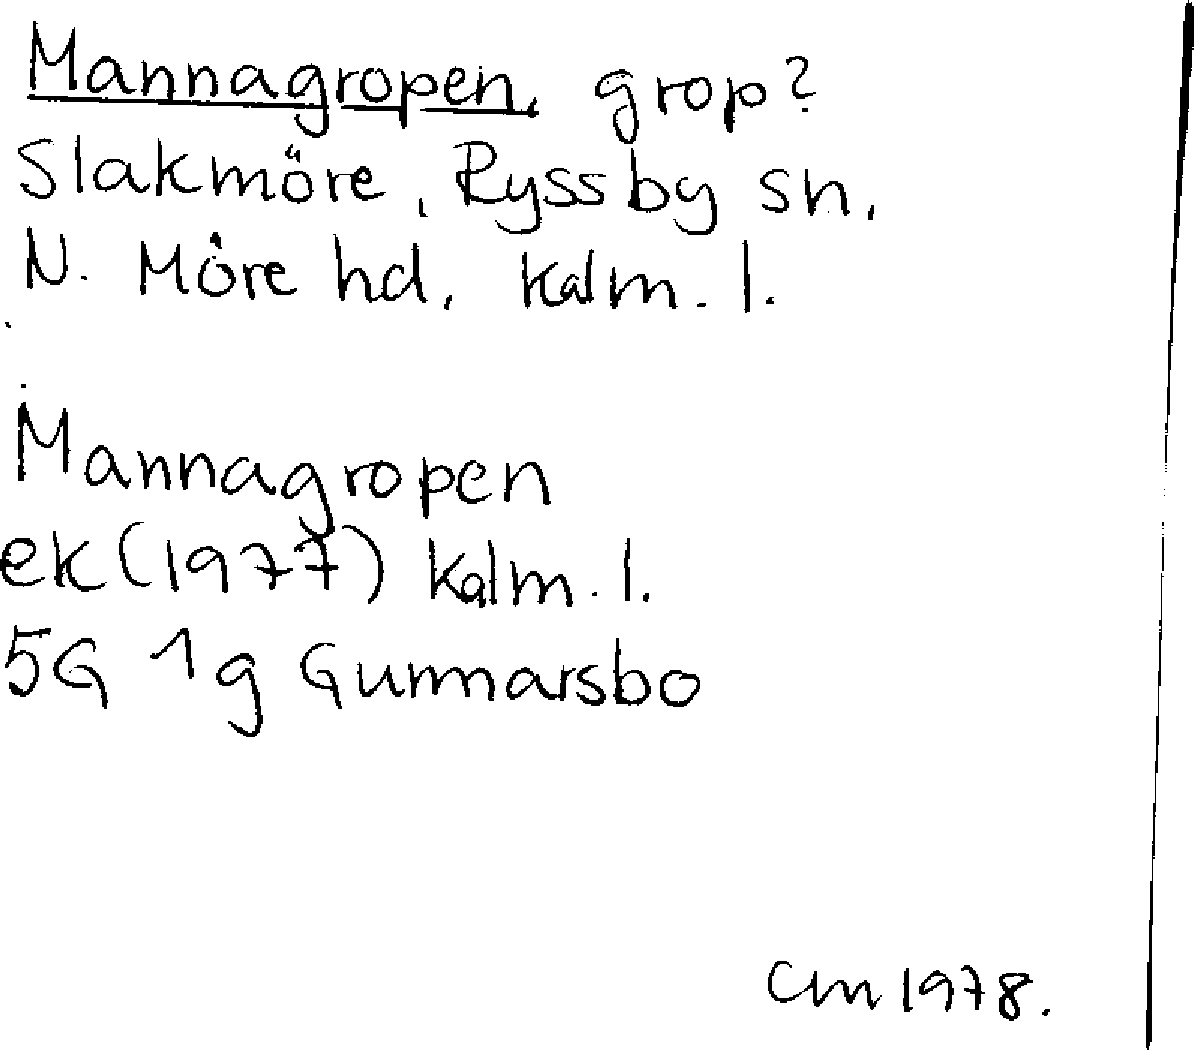 Mannagropen, grop?
Slakmöre, Ryssby sn,
N. Möre hd, Kalm. l.
Mannagropen
ek (1977) Kalm. l.
5G 1g Gunnarsbo
Cm 1978.